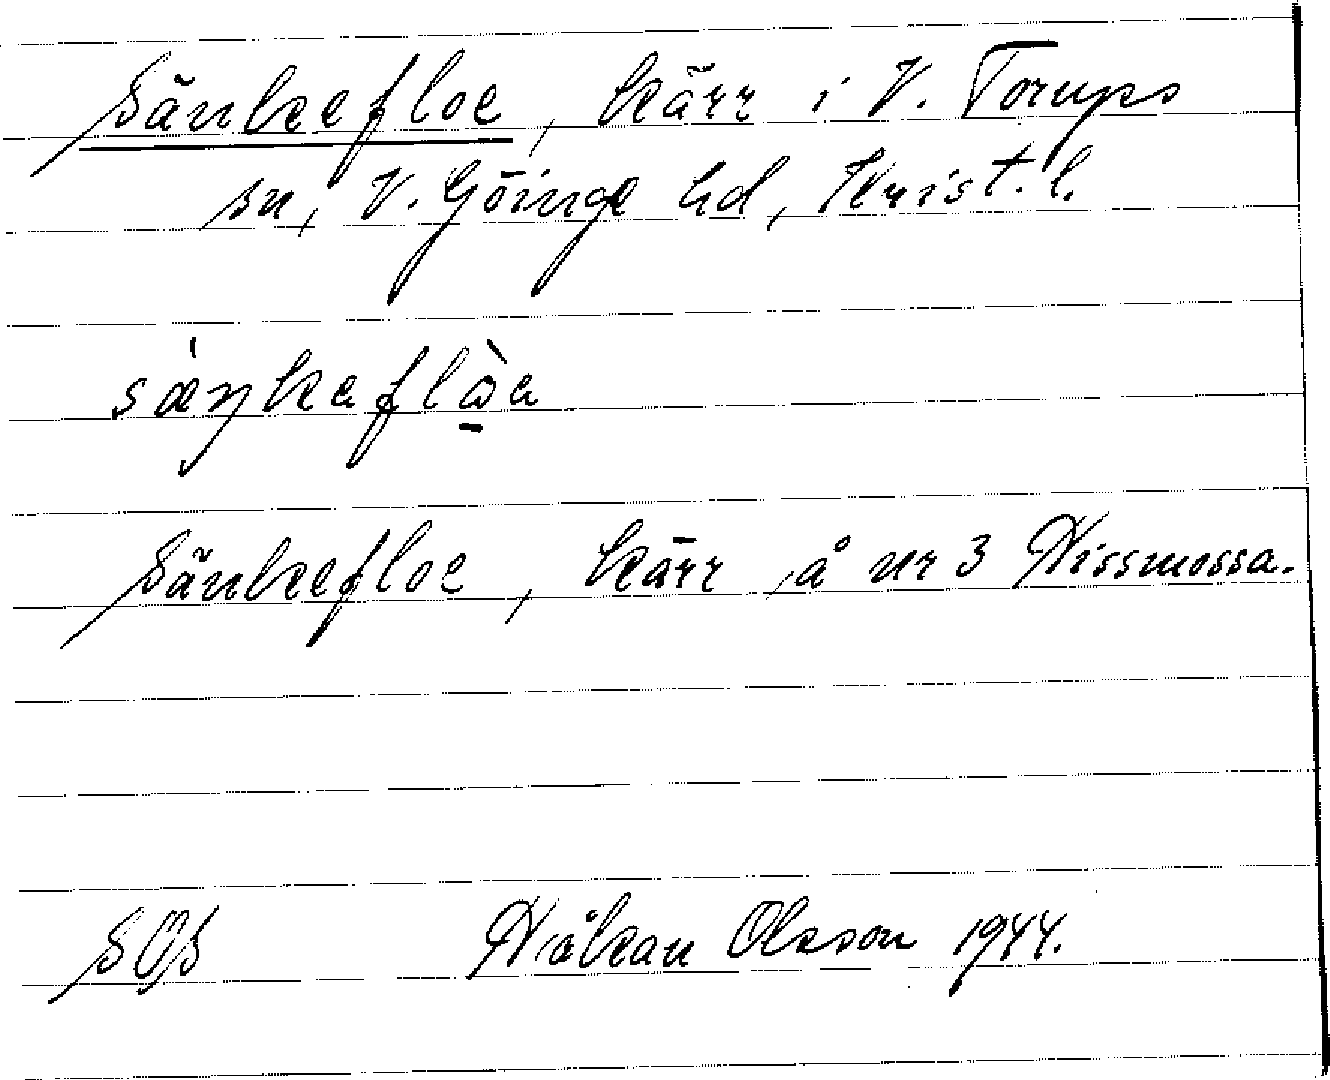 Sänkefloe, kärr i V. Torups
sn, V. Göinge hd, Krist. l.
sæŋkaflòa
Sänkefloe, kärr å nr 3 Hissmossa.
SOS Håkan Olsson 1944.